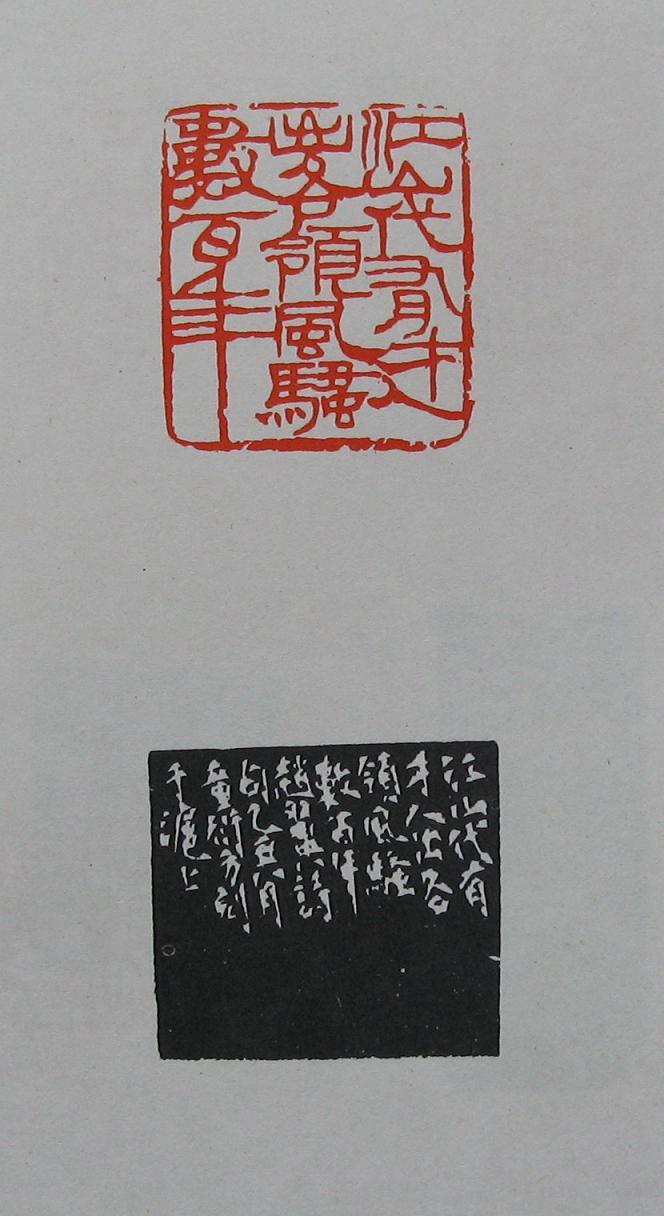 江山代有才人
出各領風騷
數百年
江山代有
才人出各
領風騷
數百年
趙翼詩
句乙月
童衍方刻
于滬上